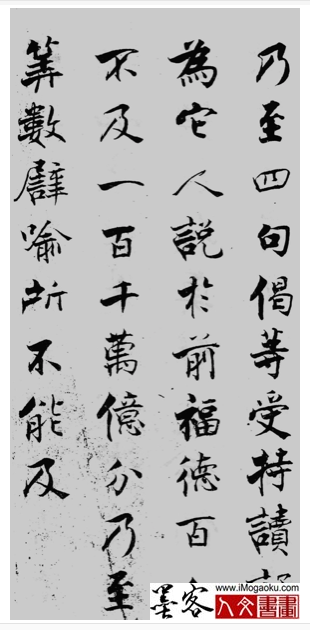 乃至四句偈等受持讀
為它人說於前福德百
不及一百千萬億分乃至
筭數譬喻所不能及
www.iMogaoku.com
墨客
人文書畫